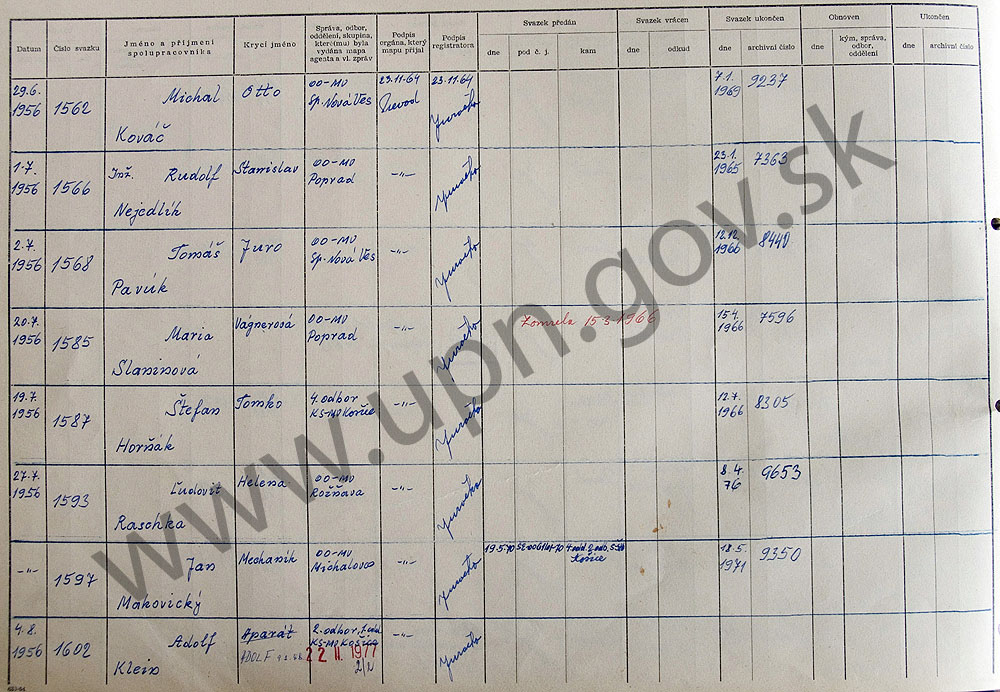 Datum
Číslo svazku
Jméno a příjmení
spolupracovníka
Krycí jméno
Správa, odbor,
oddělení, skupina,
které(mu) byla
vydána mapa
agenta a vl. zpráv
Podpis
orgána, který
mapu přijal
Podpis
registratora
Svazek předán
dne
pod č. j.
kam
Svazek vrácen
dne
odkud
Svazek ukončen
dne
archivní číslo
Obnoven
dne
kým, správa,
odbor,
oddělení
Ukončen
dne
archivní číslo
29.6.
1956
1562
Michal
Kováč
Otto
OO-MV
Sp. Nová Ves
23.11.64
Prevod
23.11.64
7.1.
1969
9237
1.7.
1956
1566
Inž. Rudolf
Nejedlík
Stanislav
OO-MV
Poprad
-"-
23.1.
1965
7363
2.7.
1956
1568
Tomáš
Pavúk
Juro
OO-MV
Sp. Nová Ves
-"-
12.12.
1966
8440
20.7.
1956
1585
Maria
Slaninová
Vágnerová
OO-MV
Poprad
-"-
Zomrela 15.3.1966
15.4.
1966
7596
19.7.
1956
1587
Štefan
Horňák
Tomko
4. odbor
KS-MV Košice
-"-
12.7.
1966
8305
27.7.
1956
1593
Ľudovit
Raschka
Helena
OO-MV
Rožňava
-"-
8.4.
76
9653
-"-
1597
Jan
Makovický
Mechanik
OO-MV
Michalovce
-"-
19.5.70
Košice
18.5.
1971
9350
4.8.
1956
1602
Adolf
Klein
Aparát
ADOLF
2. odbor,
KS-MV Košice
22 II. 1977
-"-
www.upn.gov.sk